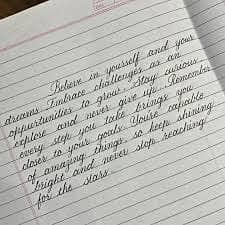 Believe in yourself and your
dreams. Embrace challenges as an
opportunities to grow. Stay curious,
explore and never give up. Remember
every step you take brings you
closer to your goals. You're capable
of amazing things, so keep shining
bright and never stop reaching
for the stars.